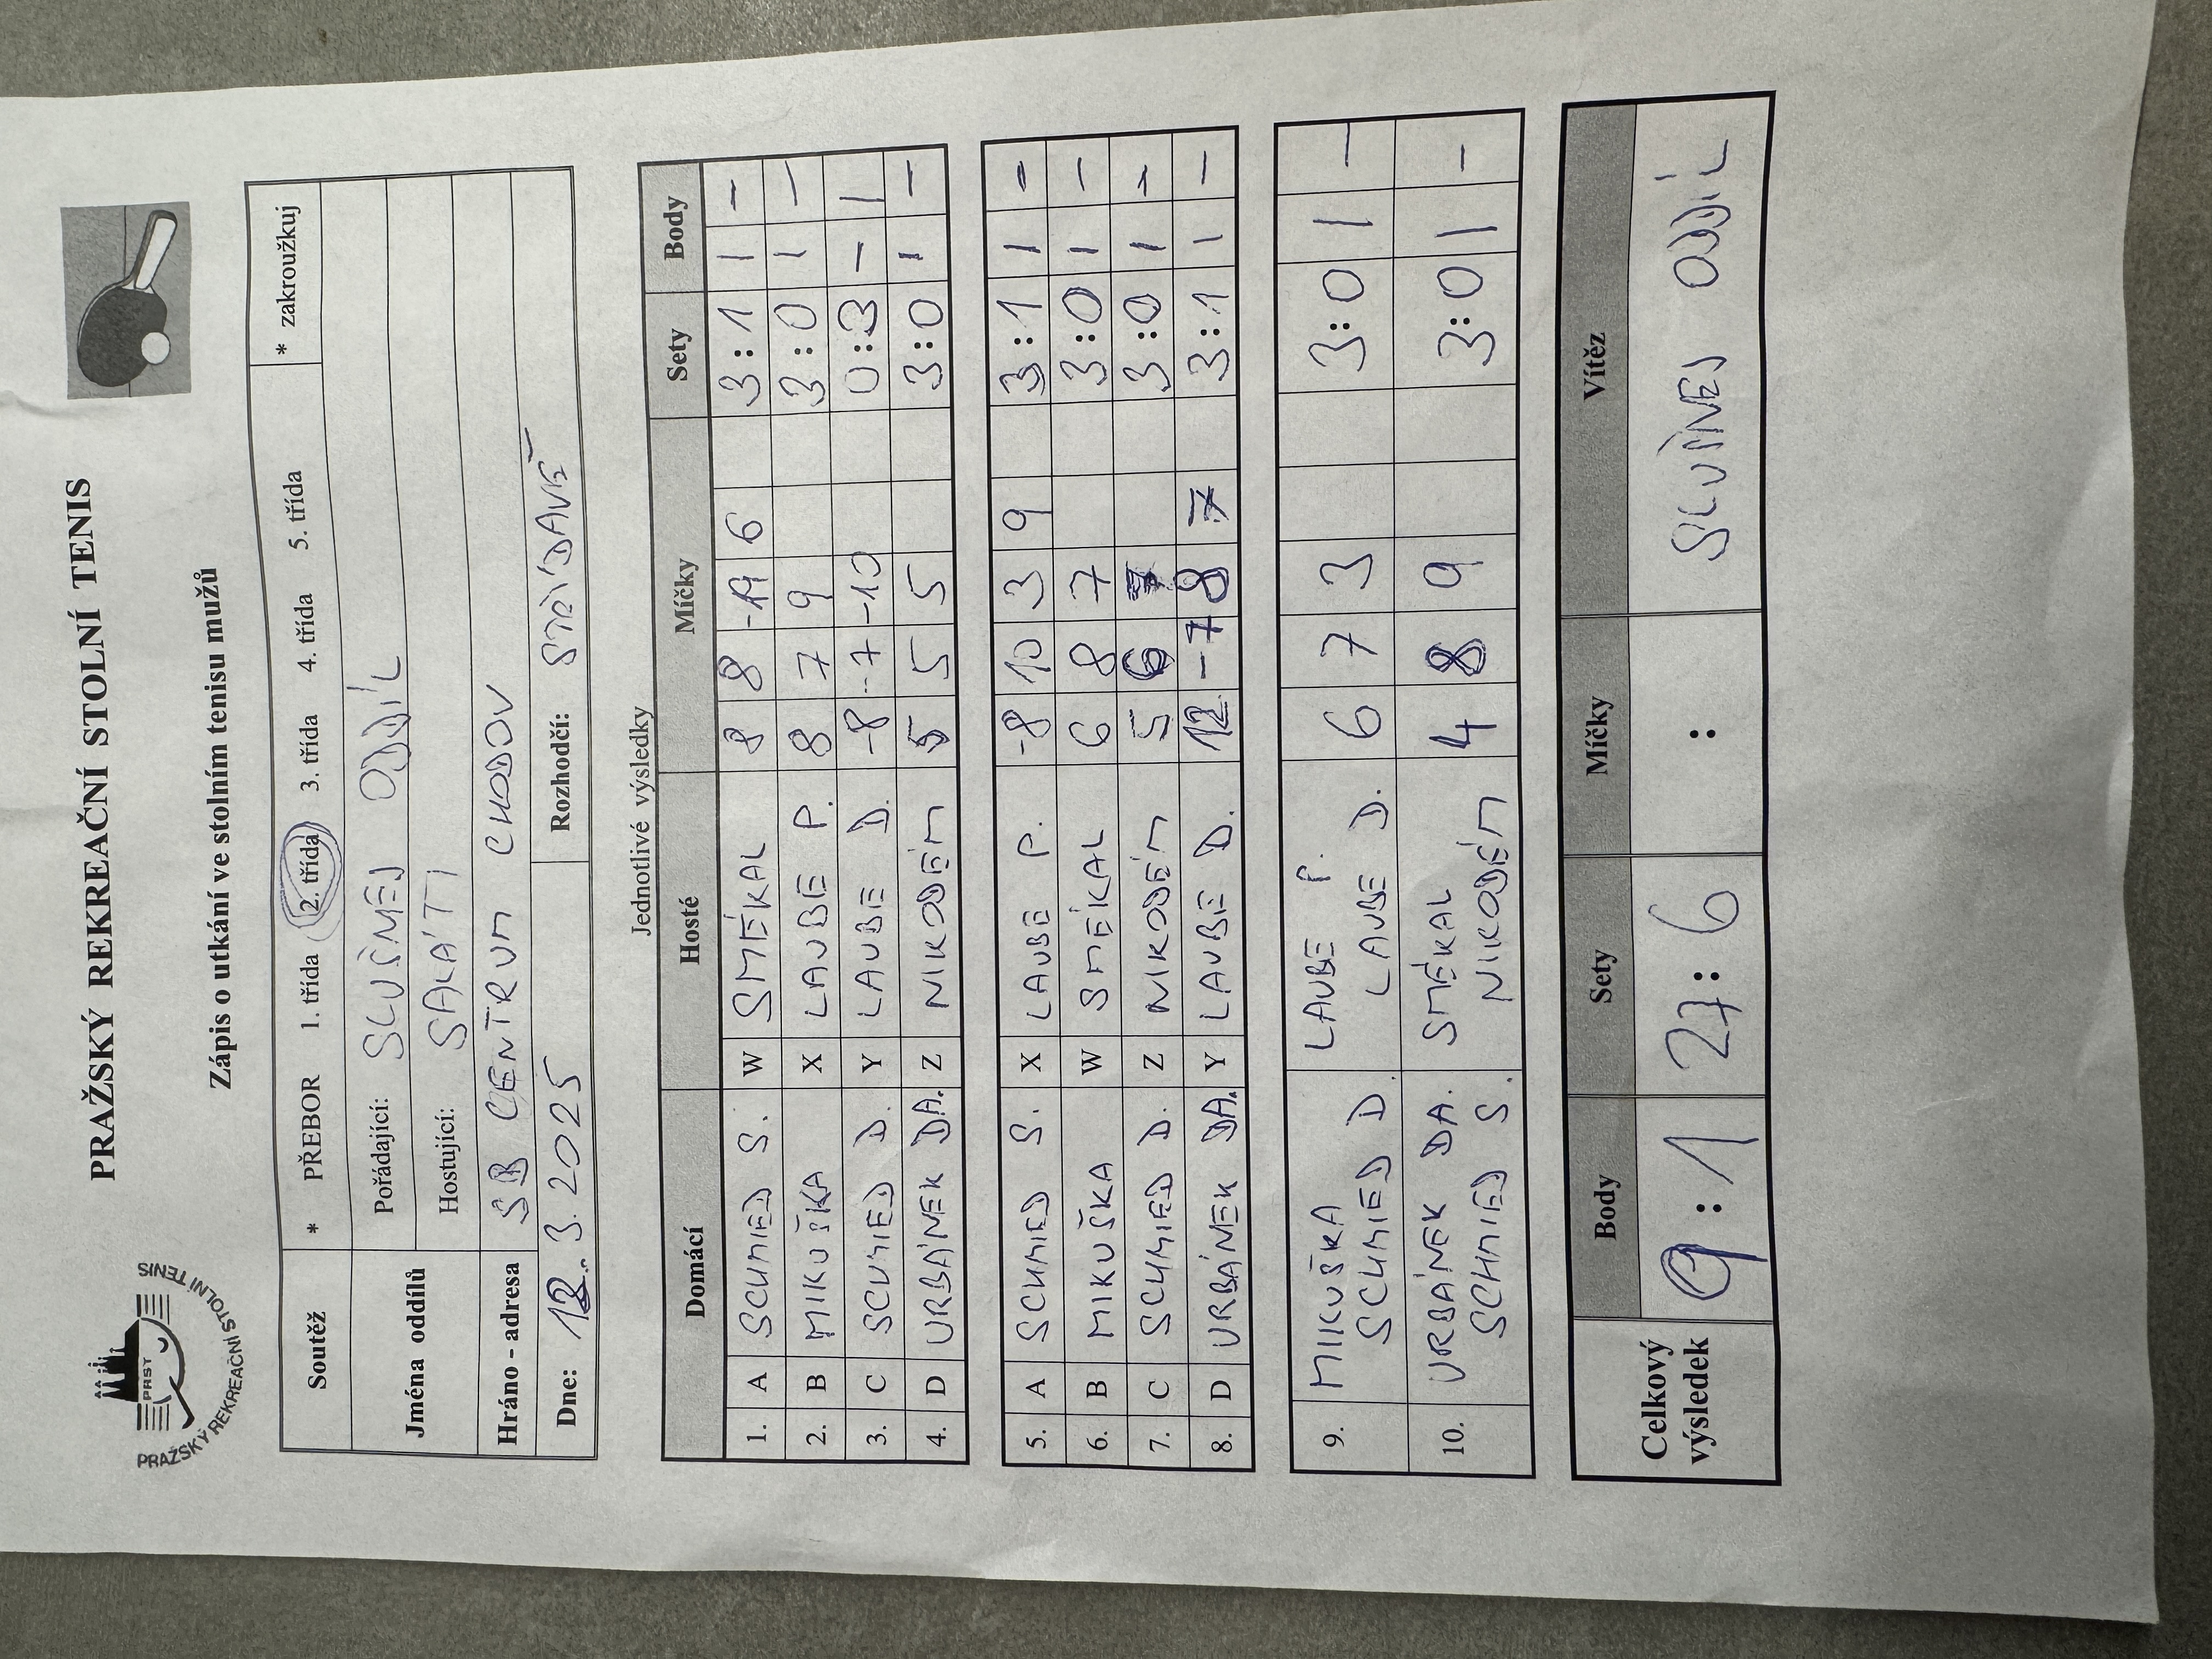 PRAŽSKÝ REKREAČNÍ STOLNÍ TENIS
PRST
PRAŽSKÝ REKREAČNÍ STOLNÍ TENIS
Zápis o utkání ve stolním tenisu mužů
Soutěž * PŘEBOR 1. třída 2. třída 3. třída 4. třída 5. třída * zakroužkuj
Jména oddílů Pořádající: SLUŠNEJ ODDÍL
Hostující: SAKÁTI
Hráno - adresa SB CENTRUM CHODOV
Dne: 12.3.2025 Rozhodčí: STŘÍDAVĚ
Jednotlivé výsledky
Domácí Hosté Míčky Sety Body
1. A SCHMIED S. W SMÉKAL 8 8 6 3:1 1 -
2. B MIKUŠKA X LAUBE P. 8 7 9 3:0 1 -
3. C SCHMIED D. Y LAUBE D. -8 -7 -10 0:3 - 1
4. D URBÁNEK DA. Z NIKODÉM 5 5 5 3:0 1 -
5. A SCHMIED S. X LAUBE P. -8 10 3 9 3:1 1 -
6. B MIKUŠKA W SMÉKAL 6 8 7 3:0 1 -
7. C SCHMIED D. Z NIKODÉM 5 6 3:0 1 -
8. D URBÁNEK DA. Y LAUBE D. 12 -7 8 7 3:1 1 -
9. MIKUŠKA LAUBE P. 6 7 3 3:0 1 -
SCHMIED D LAUBE D.
10. URBÁNEK DA. SMÉKAL 4 8 9 3:0 1 -
SCHMIED S. NIKODÉM
Celkový výsledek Body Sety Míčky Vítěz
9:1 27:6 : SLUŠNEJ ODDÍL